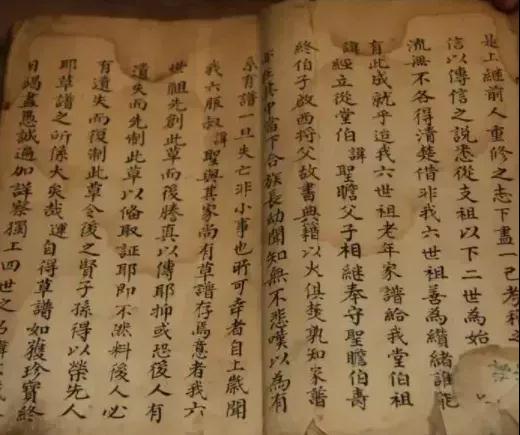 是上繼前人重修之志下盡一己考稽之
信以傳信之說悉從支祖以下二世為始
流無不各得清楚借非我六世祖善為纘緒誰能
有此成就乎迨我六世祖老年家譜給我堂伯
諱經立從堂伯諱聖瞻父子相繼奉守聖瞻伯壽
終伯子啟西將父故書典籍以火俱焚孰知家譜
在其中當下合族長幼聞知無不悲嘆以為有
宗有譜一旦失亡非小事也所可幸者自上歲聞
我六服叔諱聖與其家尚有草譜存焉意者我六
世祖先創此草而後謄真以傳耶抑或恐後人有
遺失而先制此草以備取証耶即不然料後人必
有遺失而復制此草令後之賢子孫得以榮先人
耶草譜之所係大矣哉運自得草譜如獲珍寶終
日竭盡愚誠過加詳察獨上四世之名諱